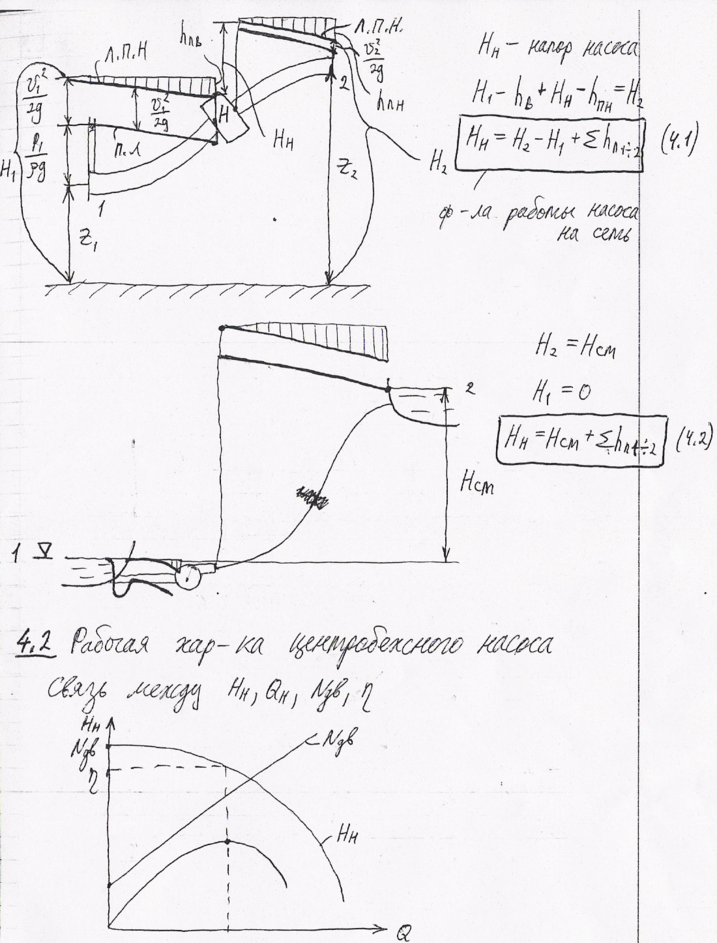 Л.П.Н
hпв
Л.П.Н.
v₂²/2g
hпн
v₁²/2g
v₁²/2g
H
Hн
P₁/ρg
п.л
H₁
1
2
Z₁
Z₂
H₂
Hн – напор насоса
H₁ – hв + Hн – hпн = H₂
Hн = H₂ – H₁ + Σhп1÷2 (4.1)
ф-ла работы насоса
на сеть
2
H₂ = Hст
H₁ = 0
Hн = Hст + Σhп1÷2 (4.2)
Hст
1
4.2 Рабочая хар-ка центробежного насоса
связь между Hн, Qн, Nдв, η
Hн
Nдв
η
Nдв
Hн
Q